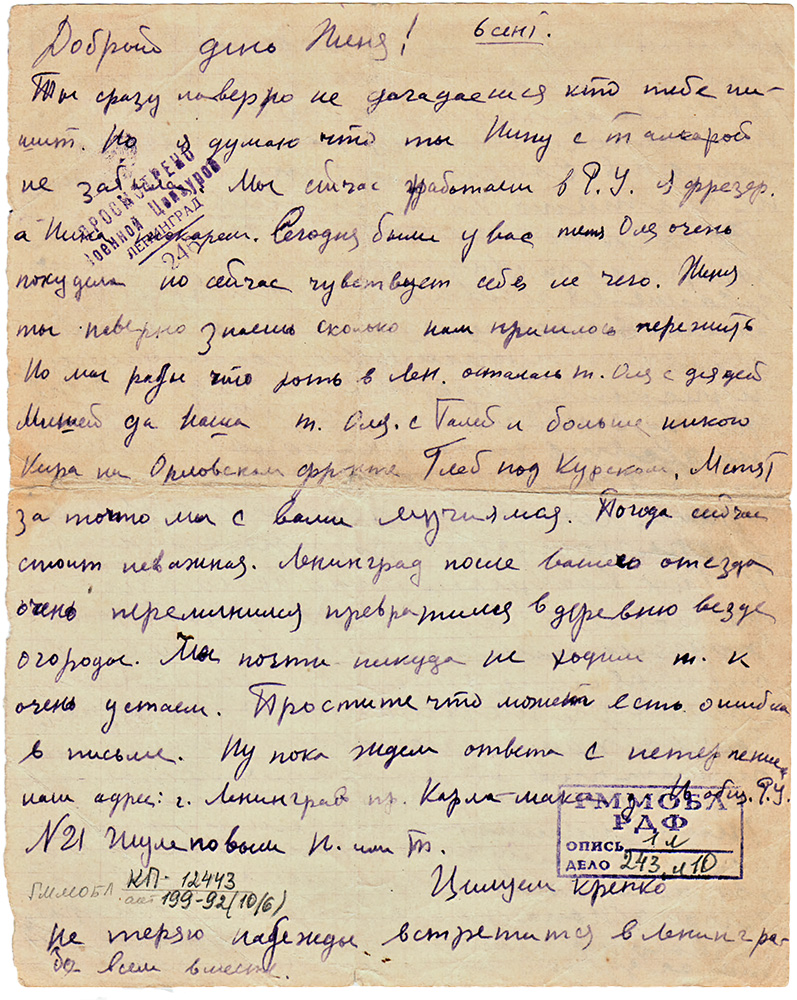 Добрый день Женя! 6 сент.
Ты сразу наверно не догадаешся кто тебе пи-
шит. Но я думаю что ты Нину с Тамарой
не забыла. Мы сичас работаем в Р.У. я фрезер.
ПРОСМОТРЕНО
Военной Цензурой
ЛЕНИНГРАД
245
а Нина токарем. Сегодня были у вас тетя Оля очень
похудела но сейчас чувствует себя не чего. Женя
ты наверно знаешь сколько нам пришлось пережить
Но мы рады что хоть в Лен. осталась т. Оля с дядей
Мишей да наша т. Оля. с Галей и больше никого
Кира на Орловском фронте Глеб под Курском. Мстят
за то что мы с вами мучиямся. Погода сейчас
стоит неважная. Ленинград после вашего отезда
очень переминился превратился в деревню везде
огороды. Мы почти никуда не ходим т. к
очень устаем. Простите что может есть ошибки
в письме. Ну пока ждем ответа с нетерпением
наш адрес: г. Ленинград пр. Карла-макса д. общ. Р.У.
N21 Шулеповым Н. или Т.
ГММОБЛ
РДФ
ОПИСЬ 1 л
ДЕЛО 243, л 10
Цилуем крепко
ГММОБЛ КП-12443
акт 199-92(10/6)
не теряю надежды встретится в Ленингра-
де всем вместе.